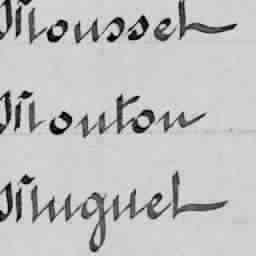 Mousset
Mouton
Muguet